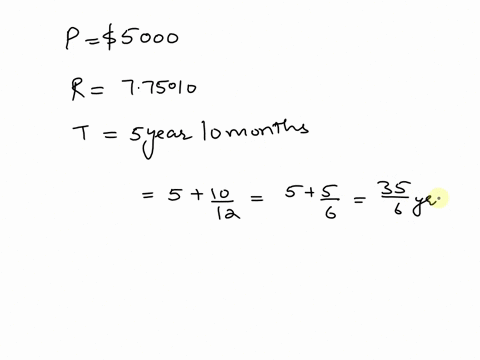 P = $5000
R = 7.75%
T = 5 year 10 months
= 5 + 10/12 = 5 + 5/6 = 35/6 yr.